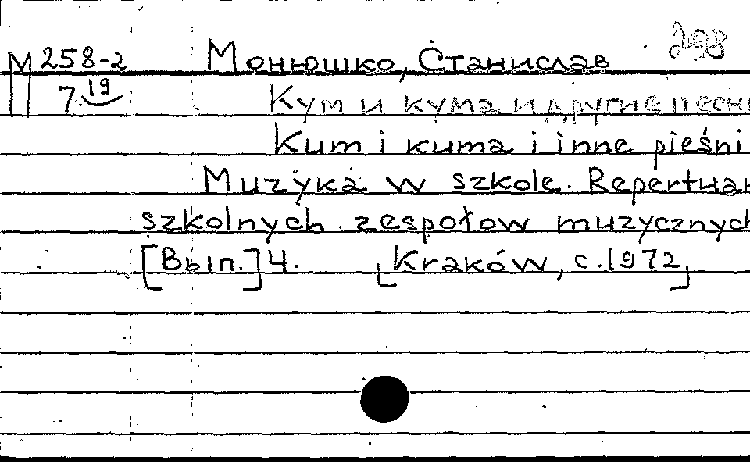 298
М 258-2 Монюшко, Станислав
7 19
Кум и кума и другие песни
Kum i kuma i inne pieśni
Muzyka w szkole. Repertuar
szkolnych zespołow muzycznych
[Вып.] 4. [Kraków, c. 1972]